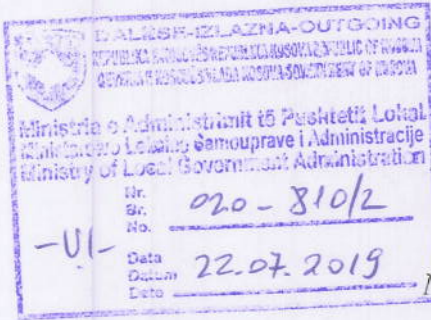 DALESE-IZLAZNA-OUTGOING
REPUBLIKA E KOSOVËS-REPUBLIKA KOSOVA-REPUBLIC OF KOSOVA
QEVERIA E KOSOVËS-VLADA KOSOVA-GOVERNMENT OF KOSOVA
Ministria e Administrimit të Pushtetit Lokal
Ministarstvo Lokalne Samouprave i Administracije
Ministry of Local Government Administration
Nr.
Br.
No.
020-810/2
-VI-
Data
Datum
Date
22.07.2019